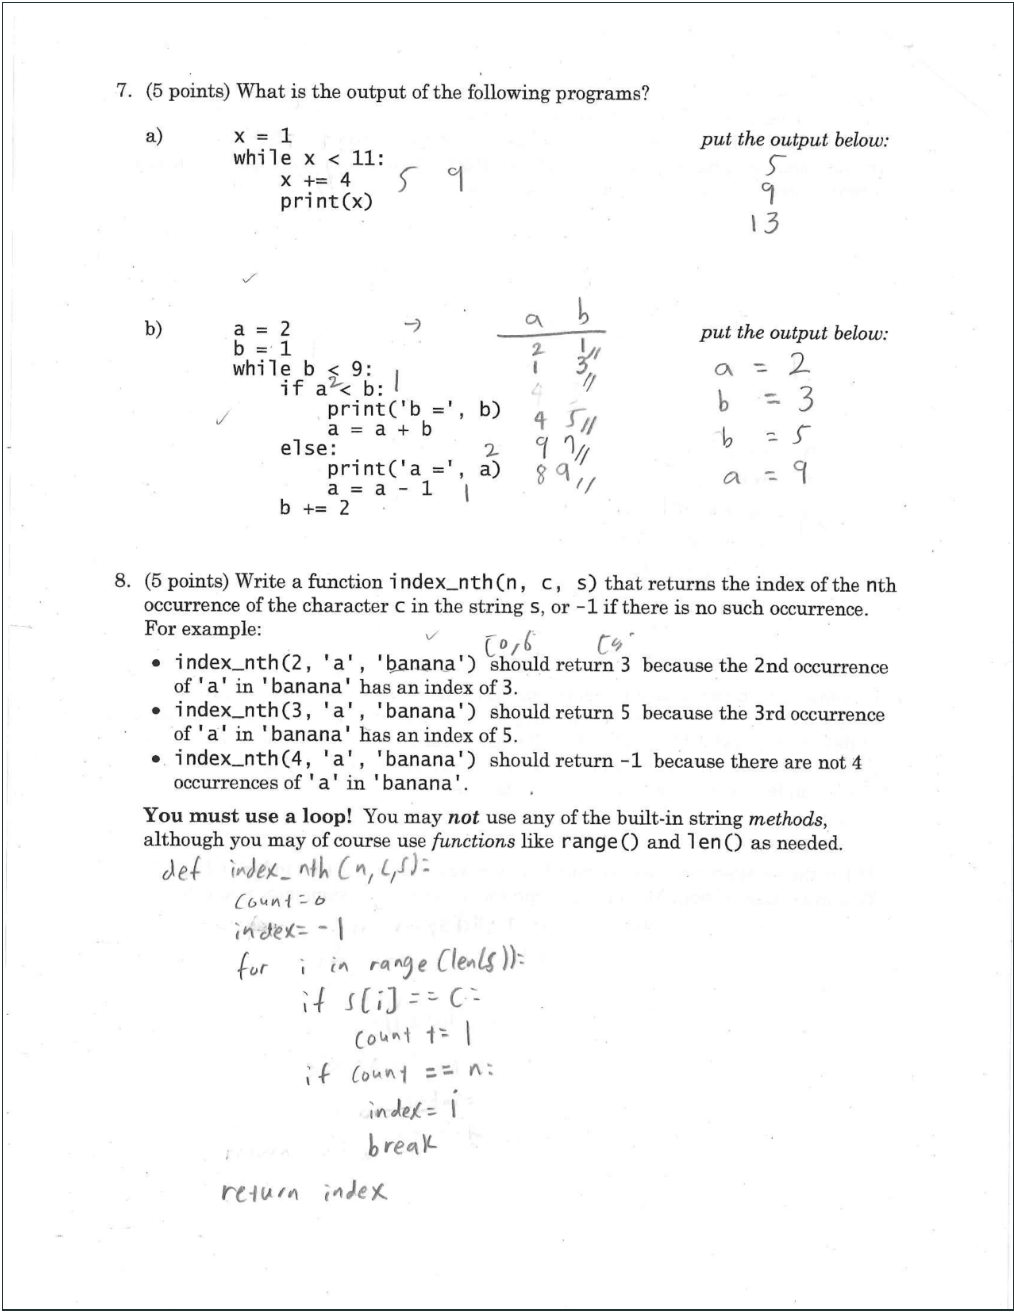 7. (5 points) What is the output of the following programs?
a) x = 1 put the output below:
while x < 11: 5
x += 4 5 9 9
print(x) 13
a b
b) a = 2 → put the output below:
b = 1 2 1//
while b < 9: 1 1 3// a = 2
if a < b: 2 1 4 // b = 3
print('b =', b) 4 5//
a = a + b b = 5
else: 2 9 7//
print('a =', a) 8 9,, a = 9
a = a - 1 1
b += 2
8. (5 points) Write a function index_nth(n, c, s) that returns the index of the nth
occurrence of the character c in the string s, or -1 if there is no such occurrence.
For example:
[0,6
• index_nth(2, 'a', 'banana') should return 3 because the 2nd occurrence
of 'a' in 'banana' has an index of 3.
• index_nth(3, 'a', 'banana') should return 5 because the 3rd occurrence
of 'a' in 'banana' has an index of 5.
• index_nth(4, 'a', 'banana') should return -1 because there are not 4
occurrences of 'a' in 'banana'.
You must use a loop! You may not use any of the built-in string methods,
although you may of course use functions like range() and len() as needed.
def index_nth (n, c, s):
count = 0
index = -1
for i in range (len(s)):
if s[i] == c:
count += 1
if count == n:
index = i
break
return index